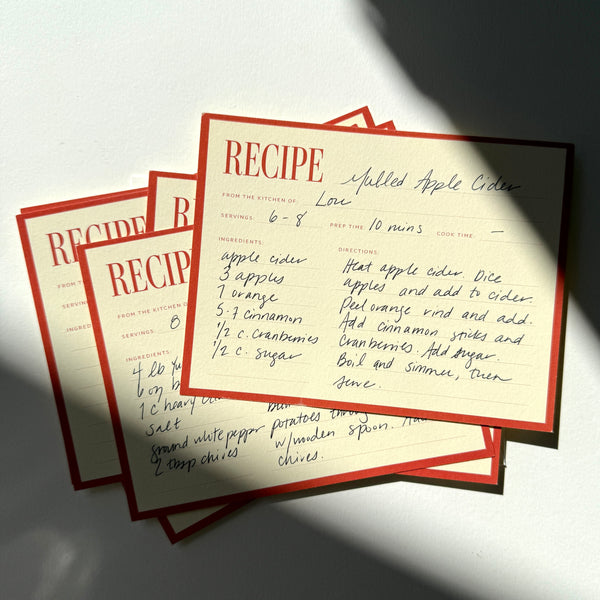 RECIPE Mulled Apple Cider
FROM THE KITCHEN OF: Lou
SERVINGS: 6-8 PREP TIME: 10 mins COOK TIME: —
INGREDIENTS:
apple cider
3 apples
1 orange
5-7 cinnamon
1/2 c. cranberries
1/2 c. sugar
DIRECTIONS:
Heat apple cider. Dice
apples and add to cider.
Peel orange rind and add.
Add cinnamon sticks and
cranberries. Add sugar.
Boil and simmer, then
serve.
RECIP
FROM THE KITCHEN O
SERVINGS: 8
INGREDIENTS:
4 lb Yu
6 oz b
1 c heavy
salt
ground white pepper potatoes
2 tbsp chives w/wooden spoon.
chives.
RECIPE
FROM T
SERVIN
INGRED
R